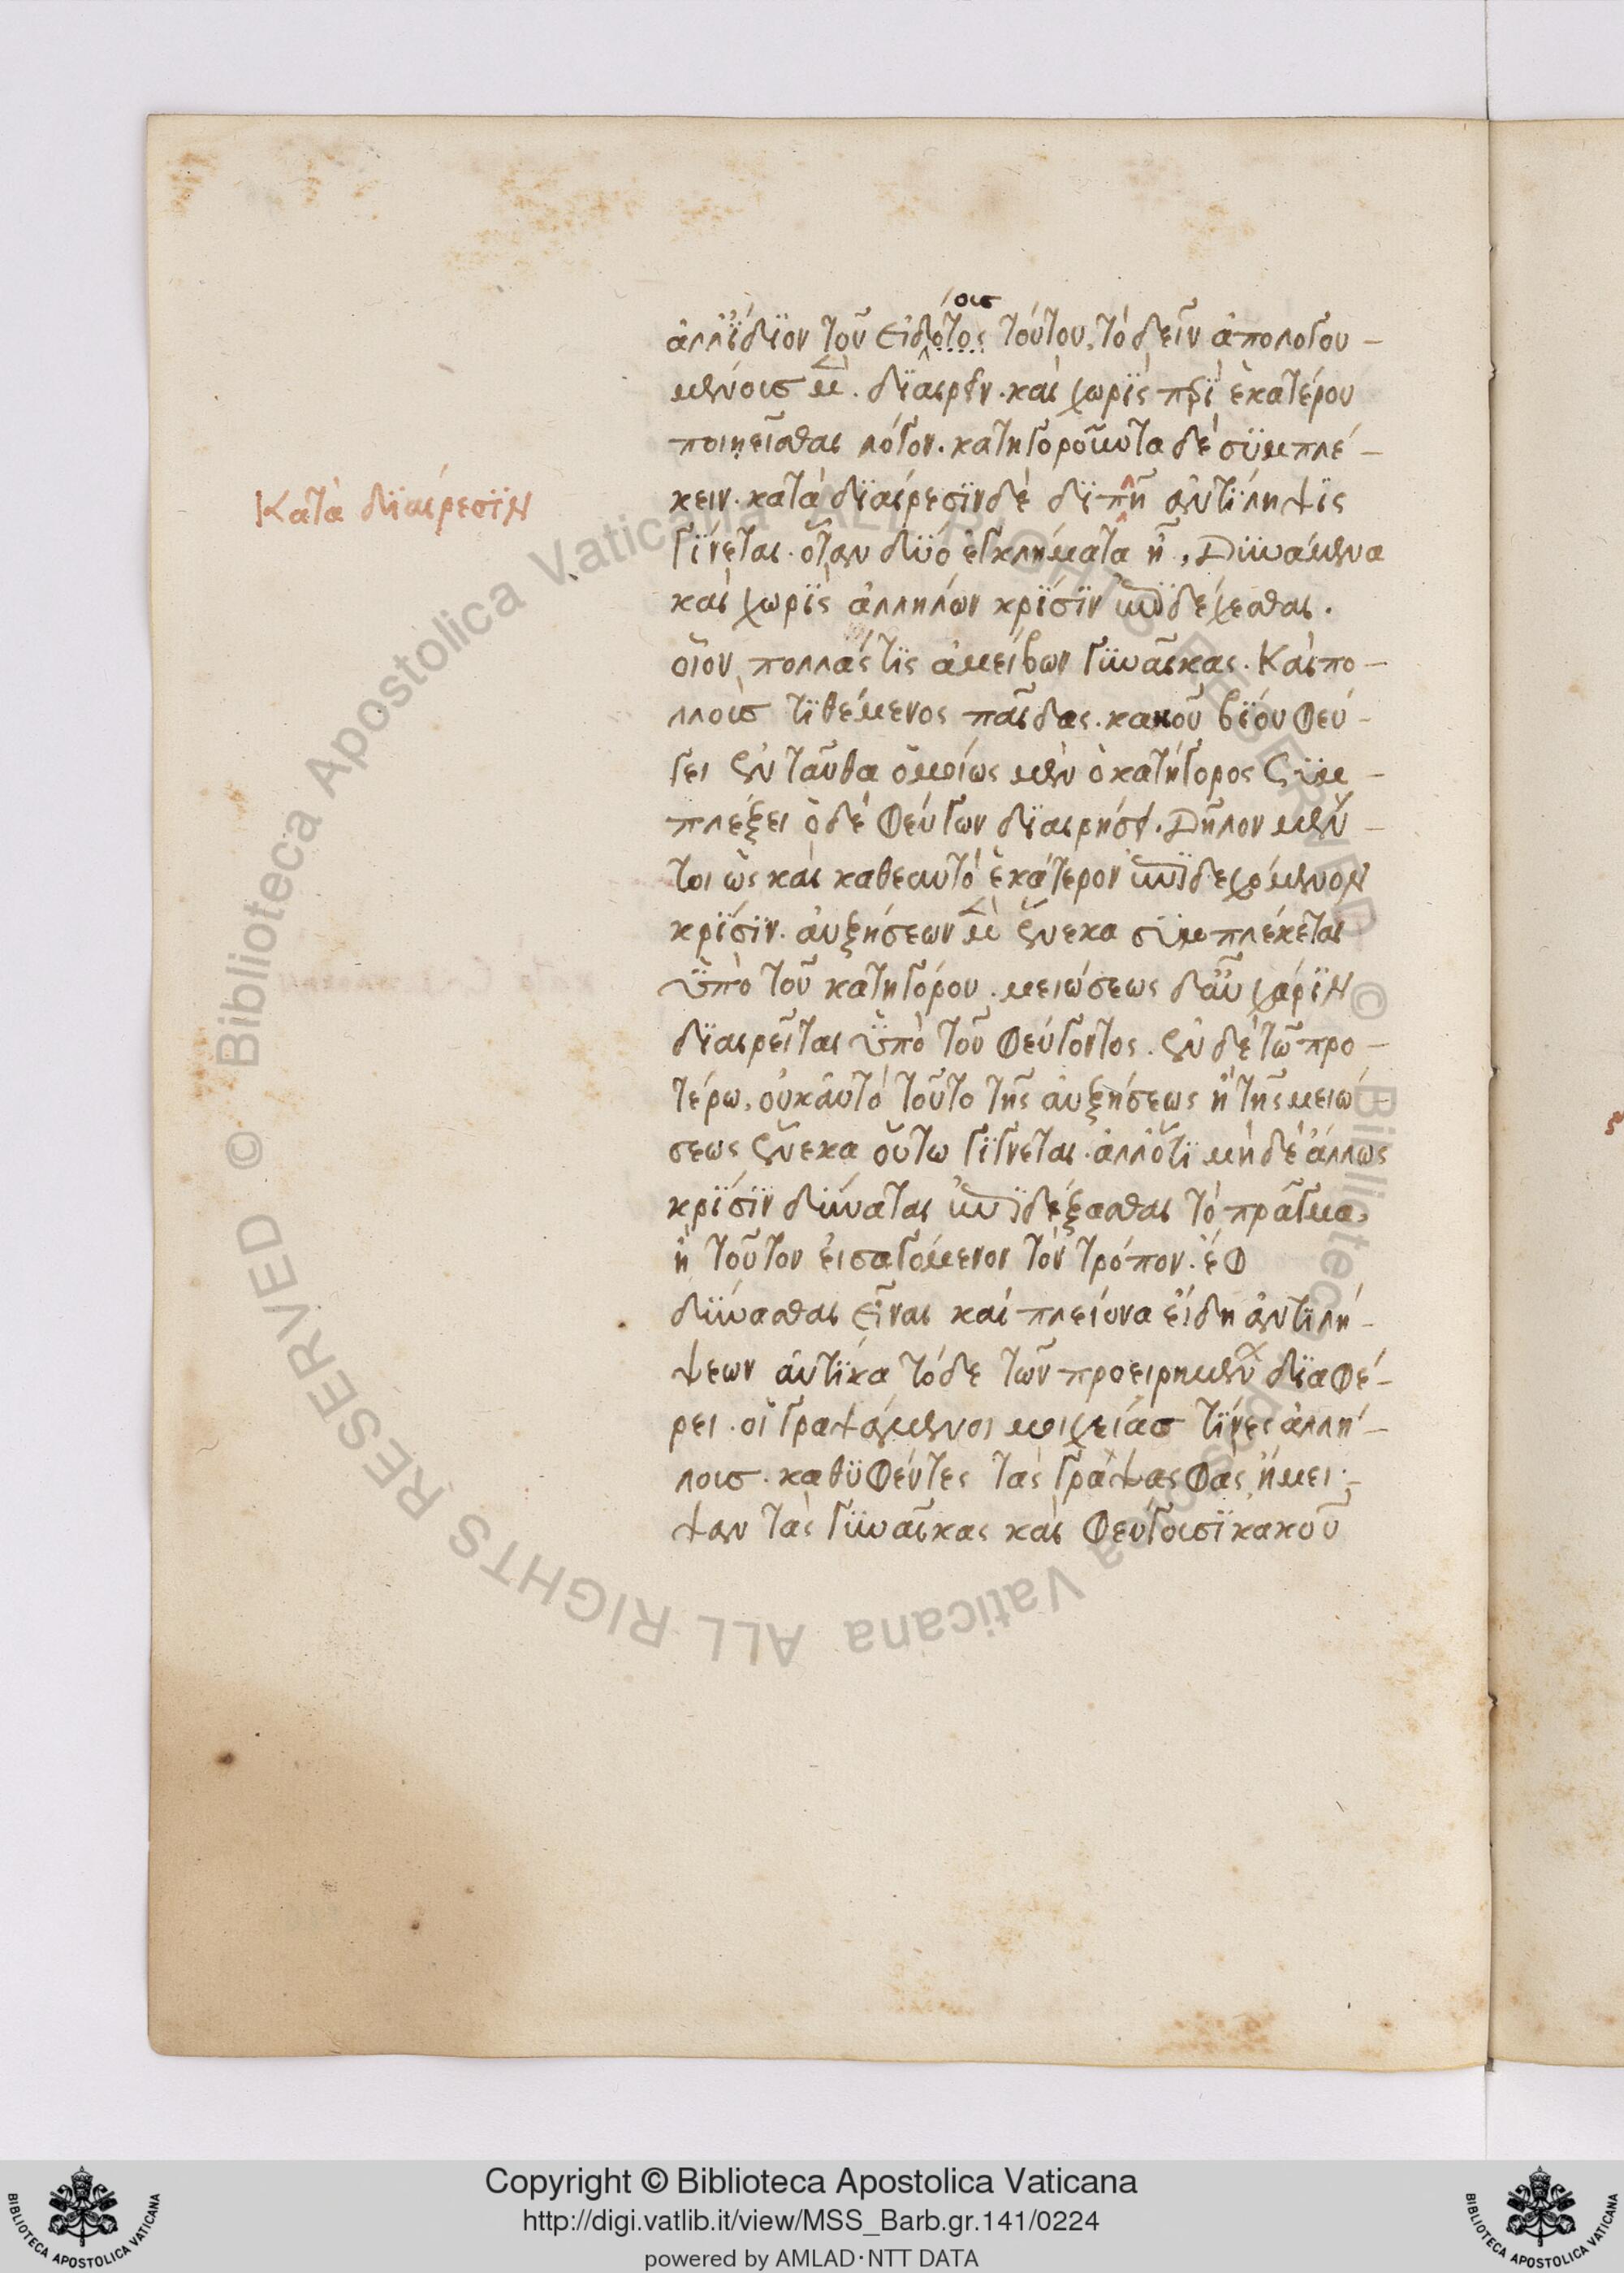 οις
ἀλλ' ἴδϊον τοῦ εἰδότος τούτου, τὸ δεῖν ἀπολογου-
μένοις μὲν διαιρεῖν. καὶ χωρὶς περὶ ἑκατέρου
ποιηεῖσθαι λόγον. κατηγοροῦντα δὲ σϋμπλέ-
κειν. κατὰ δϊαίρεσϊν δὲ δϊπλῆ ἀντίληψϊς
Κατὰ δϊαίρεσϊν
γΐνεται. ὅταν δύο ἐγκλήματα ᾖ, Δϋνάμενα
καὶ χωρϊς ἀλλήλων κρΐσϊν ὑποδέχεσθαι.
οἷον, πολλάς τϊς ἀμείβων γϋναῖκας. Καὶ πο-
λλοῖς τϊθέμενος παῖδας. κακοῦ βΐου φεύ-
γει ἐνταῦθα ὁμοίως μὲν ὁ κατήγορος Σϋμ-
πλέξει ὁ δὲ φεύγων δϊαιρήσει. Δῆλον μέν-
τοι ὡς καὶ καθεαυτὸ ἑκάτερον ὑποδεχόμενον
κρΐσϊν. αὐξήσεων μὲν ἕνεκα σϋμπλέκεται
ὑπὸ τοῦ κατηγόρου. μειώσεως δ' αὖ χάρϊν
δϊαιρεῖται ὑπὸ τοῦ φεύγοντος. ἐν δὲ τῶ προ-
τέρω, οὐκ αὐτὸ τοῦτο τῆς αὐξήσεως ἢ τῆς μειώ-
σεως ἕνεκα οὕτω γΐγνεται. ἀλλ' ὅτϊ μὴ δὲ ἄλλως
κρΐσϊν δύναται ὑποδέξασθαι τὸ πρᾶγμα,
ἢ τοῦτον εἰσαγόμενον τὸν τρόπον. ἐφ
δύνασθαι εἶναι καὶ πλείονα εἴδη ἀντϊλή-
ψεων αὐτΐκα τόδε τῶν προειρημένων δϊαφέ-
ρει. οἱ γραψάμενοι μοιχείας τϊνες ἀλλή-
λοις. καθϋφέντες τὰς γραφας φας, ἤμει-
ψαν τὰς γϋναῖκας καὶ φεύγουσϊ κακοῦ
Copyright © Biblioteca Apostolica Vaticana
http://digi.vatlib.it/view/MSS_Barb.gr.141/0224
powered by AMLAD·NTT DATA
BIBLIOTECA APOSTOLICA VATICANA
BIBLIOTECA APOSTOLICA VATICANA
© Biblioteca Apostolica Vaticana ALL RIGHTS RESERVED © Biblioteca Apostolica Vaticana ALL RIGHTS RESERVED